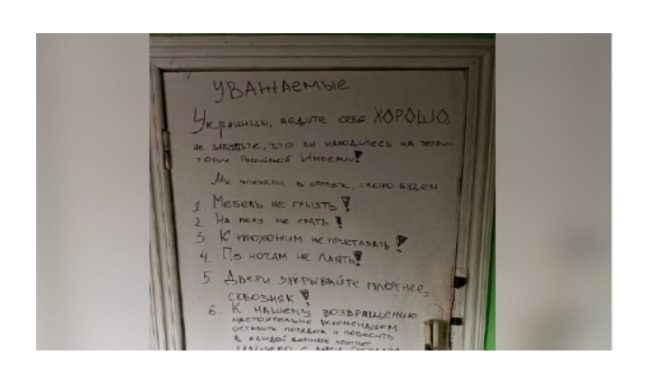 УВАЖАЕМЫЕ
Украинцы, ведите себя ХОРОШО,
не забудьте, что вы находитесь на терри-
тории Российской Империи!
Мы поехали в отпуск, скоро будем.
1. Мебель не грызть!
2. На полу не спать!
3. К прохожим не приставать!
4. По ночам не лаять!
5. Двери закрывайте плотнее,
сквозняк!
6. К нашему возвращению
настоятельно рекомендуем
оставить порядок и повесить
в каждой комнате портрет